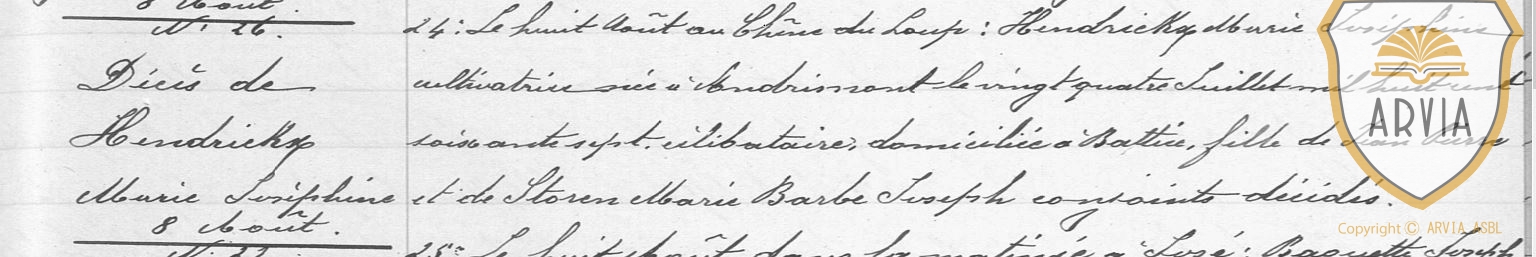 8 Août.
N° 26.
Décès de
Hendrickx
Marie Joséphine
8 Août.
24: Le huit Août au Chêne du Loup: Hendrickx Marie Joséphine
cultivatrice née à Andrimont le vingt quatre Juillet mil huit cent
soixante sept. célibataire, domiciliée à Battice, fille de Jean Pierre
et de Storen Marie Barbe Joseph conjoints décédés.
25° Le huit Août dans la matinée à José: Baguette Joseph
ARVIA
Copyright © ARVIA ASBL